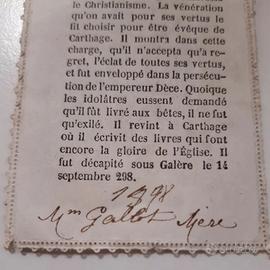 le Christianisme. La vénération
qu'on avait pour ses vertus le
fit choisir pour être évêque de
Carthage. Il montra dans cette
charge, qu'il n'accepta qu'à re-
gret, l'éclat de toutes ses vertus,
et fut enveloppé dans la persécu-
tion de l'empereur Dèce. Quoique
les idolâtres eussent demandé
qu'il fût livré aux bêtes, il ne fut
qu'exilé. Il revint à Carthage
où il écrivit des livres qui font
encore la gloire de l'Église. Il
fut décapité sous Galère le 14
septembre 298.
1998
Mm Gallot Mère